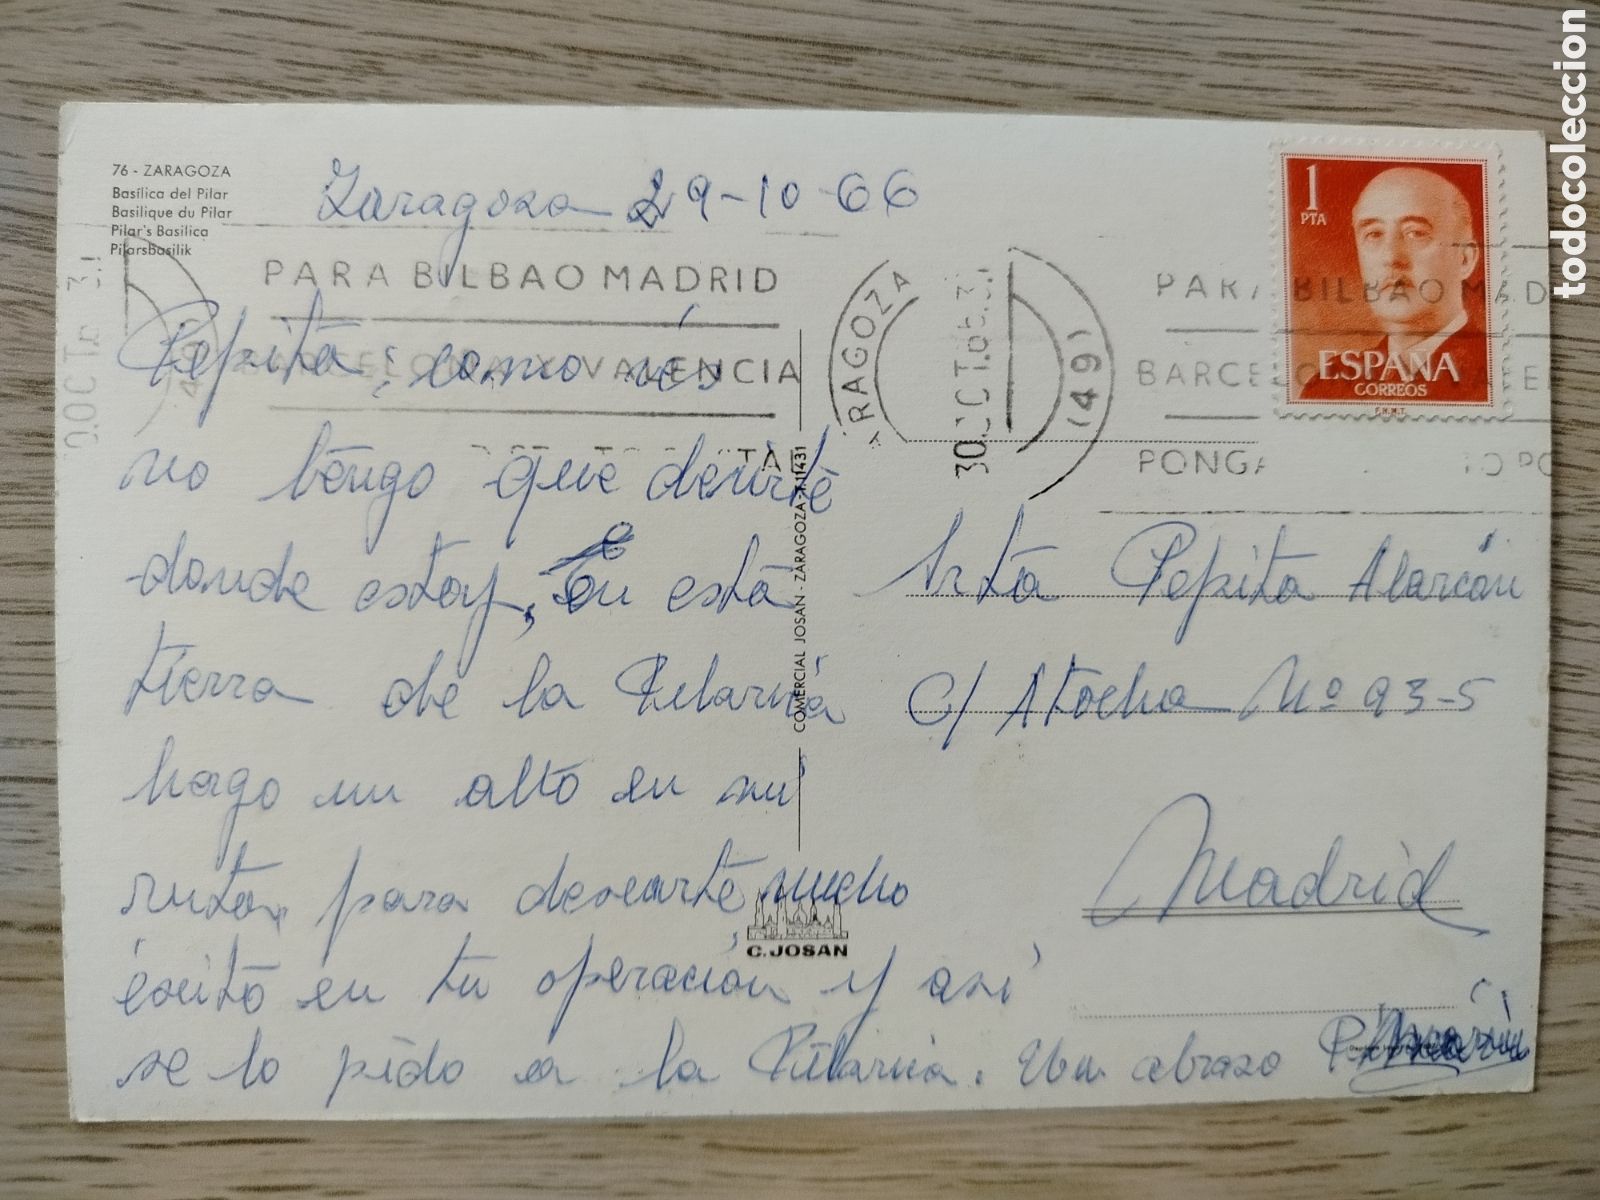 76 - ZARAGOZA
Basílica del Pilar
Basilique du Pilar
Pilar's Basilica
Pilarsbasilik
Zaragoza 29-10-66
PARA BILBAO MADRID
VALENCIA
Pepita; como ves
no tengo que decirte
donde estoy, En esta
tierra de la Pilarica
hago un alto en mi
ruta, para desearte mucho
éxito en tu operación y así
se lo pido a la Pilarica. Un abrazo
COMERCIAL JOSAN - ZARAGOZA - T. 11431
C. JOSAN
ZARAGOZA
30 OCT.
(49)
1
PTA
ESPAÑA
CORREOS
F.N.M.T.
BILBAO MAD
BARCE
PONGA
Srta Pepita Alarcón
C/ Atocha Nº 93-5
Madrid
todocoleccion